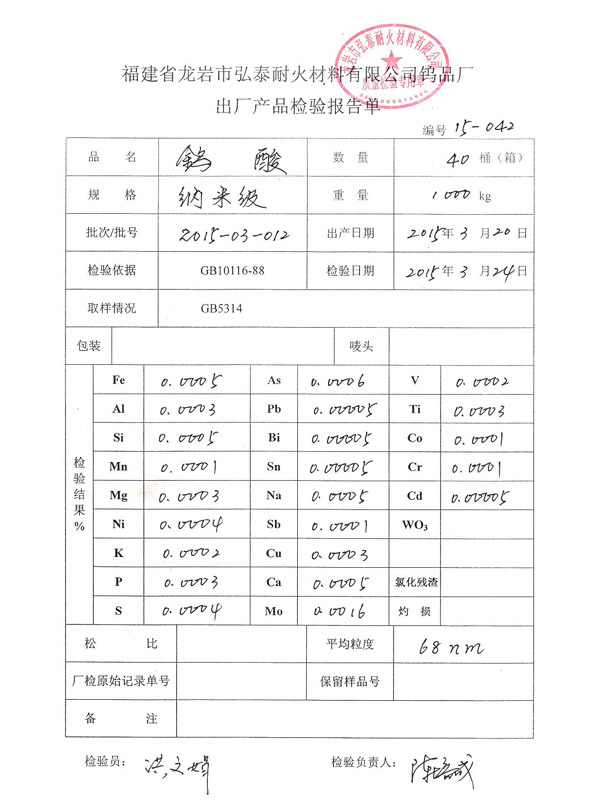 福建省龙岩市弘泰耐火材料有限公司钨品厂
岩市弘泰耐火材料有限公司
质量检验专用章
出厂产品检验报告单
编号 15-042
品 名 钨 酸 数 量 40 桶（箱）
规 格 纳米级 重 量 1000 kg
批次/批号 2015-03-012 出产日期 2015年 3 月 20 日
检验依据 GB10116-88 检验日期 2015年 3 月 24 日
取样情况 GB5314
包装 唛头
检验结果%
Fe 0.0005 As 0.0006 V 0.0002
Al 0.0003 Pb 0.00005 Ti 0.0003
Si 0.0005 Bi 0.00005 Co 0.0001
Mn 0.0001 Sn 0.00005 Cr 0.0001
Mg 0.0003 Na 0.0005 Cd 0.00005
Ni 0.0004 Sb 0.0001 WO₃
K 0.0002 Cu 0.0003
P 0.0003 Ca 0.0005 氯化残渣
S 0.0004 Mo 0.0016 灼 损
松 比 平均粒度 68nm
厂检原始记录单号 保留样品号
备 注
检验员： 洪文娟 检验负责人： 陈